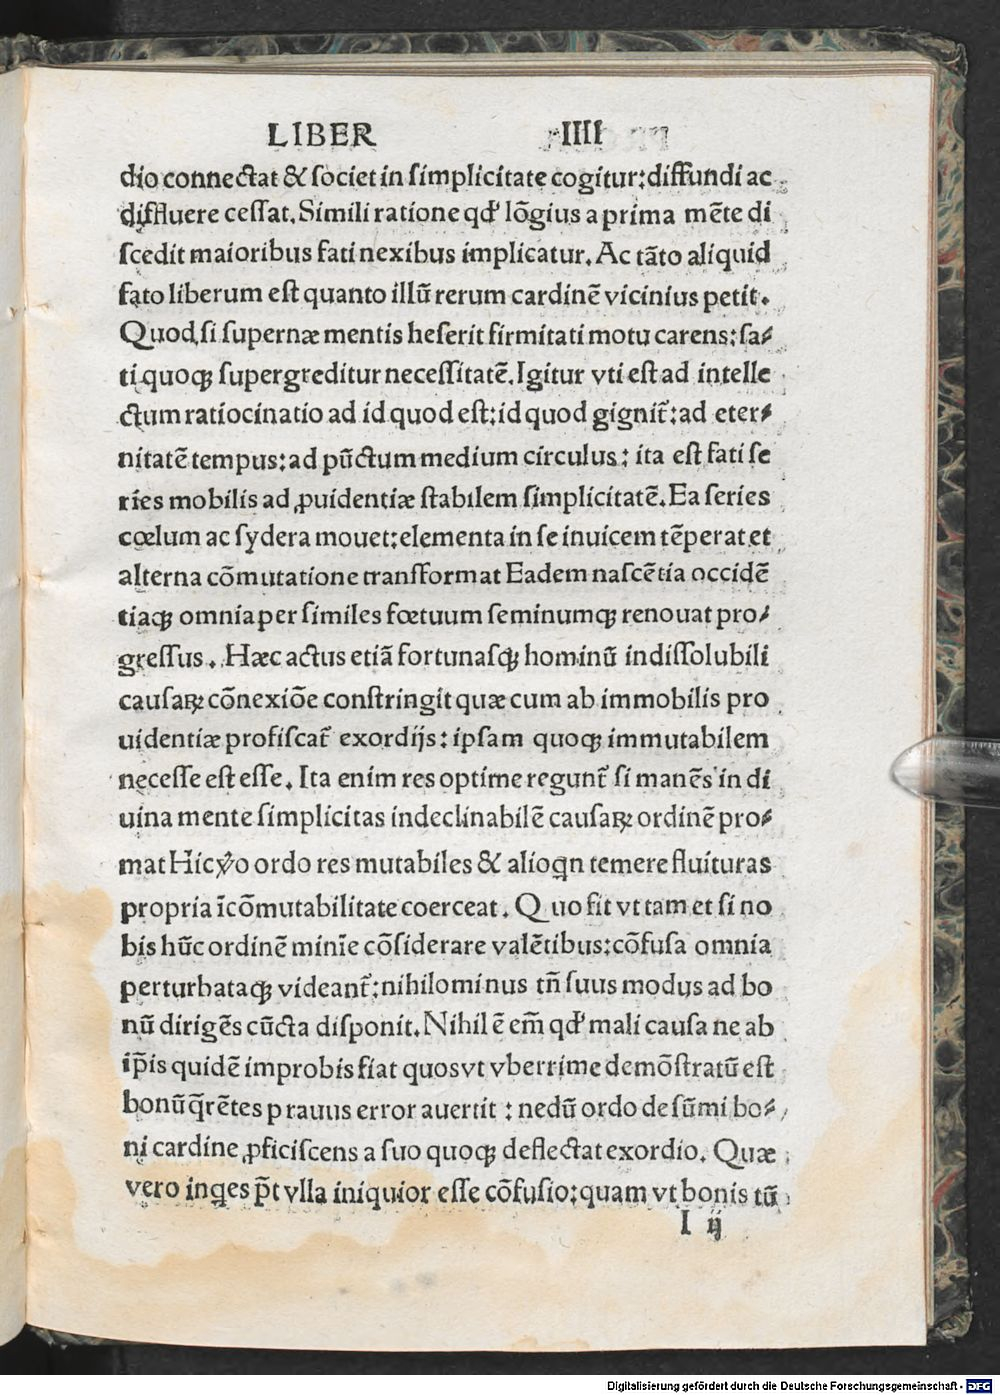 LIBER IIII
dio connectat & ſociet in ſimplicitate cogitur:diffundi ac
diffluere ceſſat. Simili ratione qđ lõgius a prima mẽte di
ſcedit maioribus fati nexibus implicatur. Ac tãto aliquid
fato liberum eſt quanto illũ rerum cardinẽ vicinius petit.
Quod ſi ſupernæ mentis heſerit firmitati motu carens: fa⸗
ti quoqꝫ ſupergreditur neceſſitatẽ. Igitur vti eſt ad intelle
ctum ratiocinatio ad id quod eſt:id quod gignit̃:ad eter⸗
nitatẽ tempus:ad pũctum medium circulus: ita eſt fati ſe
ries mobilis ad ꝓuidentiæ ſtabilem ſimplicitatẽ. Ea ſeries
cœlum ac ſydera mouet:elementa in ſe inuicem tẽperat et
alterna cõmutatione tranſformat Eadem naſcẽtia occidẽ
tiaqꝫ omnia per ſimiles fœtuum ſeminumqꝫ renouat pro⸗
greſſus. Hæc actus etiã fortunaſqꝫ hominũ indiſſolubili
cauſaꝝ cõnexiõe conſtringit quæ cum ab immobilis pro
uidentiæ profiſcat̃ exordijs: ipſam quoqꝫ immutabilem
neceſſe eſt eſſe. Ita enim res optime regunt̃ ſi manẽs in di
uina mente ſimplicitas indeclinabilẽ cauſaꝝ ordinẽ pro⸗
mat Hic ꝟo ordo res mutabiles & alioqn temere fluituras
propria ĩcõmutabilitate coerceat. Quo fit vt tam et ſi no
bis hũc ordinẽ minĩe cõſiderare valẽtibus:cõfuſa omnia
perturbataqꝫ videant̃:nihilominus tñ ſuus modus ad bo
nũ dirigẽs cũcta diſponit. Nihil ẽ em̃ qđ mali cauſa ne ab
ip̃is quidẽ improbis fiat quos vt vberrime demõſtratũ eſt
bonũ q̃rẽtes prauus error auertit: nedũ ordo de ſũmi bo⸗
ni cardine ꝓficiſcens a ſuo quoqꝫ deflectat exordio. Quæ
vero inqes p̃t vlla iniquior eſſe cõfuſio:quam vt bonis tũ
I ij
Digitalisierung gefördert durch die Deutsche Forschungsgemeinschaft - DFG